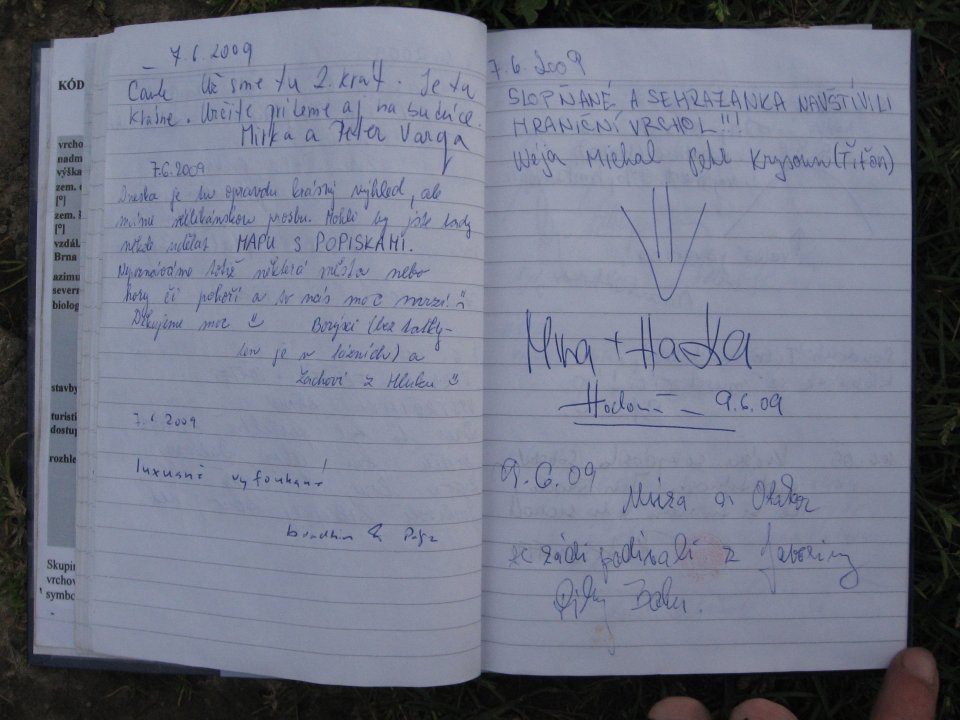 KÓD
vrcho
nadm
výška
zem.
[°]
zem.
[°]
vzdál.
Brna
azimu
severn
biolog
stavby
turisti
dostup
rozhle
Skupin
vrchov
symbo
7.6.2009
Caute Už sme tu 2. krát. Je tu
krásne. Určite prídeme aj na budúce.
Mirka a Peter Varga
7.6.2009
Dneska je tu opravdu krásný výhled, ale
máme velikánskou prosbu. Mohli by jste tady
někdo udělat MAPU S POPISKAMI.
Nepoznáváme totiž některá města nebo
hory či pohoří a to nás moc mrzí!
Děkujeme moc Borýsci (bez taťky-
ten je v lázních) a
Zachovi z Hluku
7.6.2009
luxusně vyfoukané
7.6.2009
SLOPŇANÉ A SEHRAZANKA NAVŠTÍVILI
HRANIČNÍ VRCHOL!!!
Weja Michal Petr Krysoun (Tifón)
Mira + Hanka
Hodonín 9.6.09
9.6.09
Míra a Otakar
se zádi podívali z Javořiny